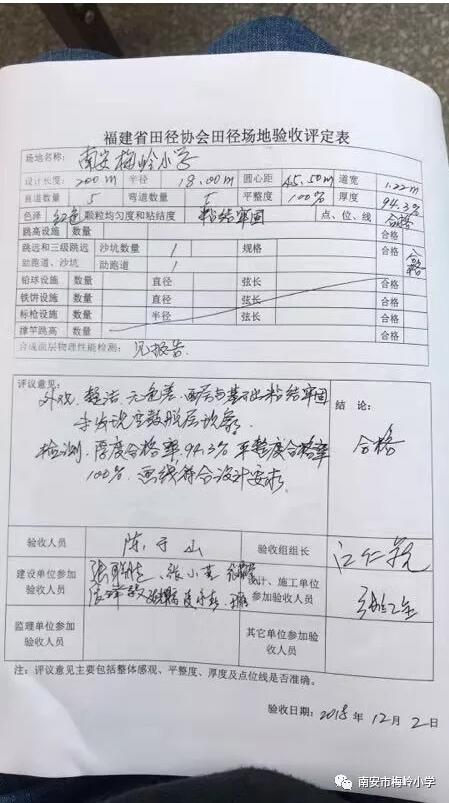 福建省田径协会田径场地验收评定表
场地名称： 南安梅岭小学
设计长度： 200m 半径 18.00m 圆心距 45.50m 道宽 1.22m
直道道数 5 弯道道数 5 平整度 100% 厚度 94.3%
色泽 红色 颗粒均匀度和粘结度 粘结牢固 点、位、线 合格
跳高设施 数量 合格
跳远和三级跳远 沙坑数量 1 规格 合格 合格
助跑道、沙坑 助跑道 1
铅球设施 数量 直径 弦长 合格
铁饼设施 数量 直径 弦长 合格
标枪设施 数量 半径 弦长 合格
撑竿跳高 数量 合格
合成面层物理性能检测： 见报告
评议意见：
外观：整洁、无色差、面层与基础粘结牢固
未发现空鼓脱层现象。
检测：厚度合格率94.3% 平整度合格率
100%，画线符合设计要求。
结 论：
合格
验收人员 陈 山 验收组组长 江仁
建设单位参加验收人员 张小 设计、施工单位参加验收人员
监理单位参加验收人员 其它单位参加验收人员
注：评议意见主要包括整体感观、平整度、厚度及点位线是否准确。
验收日期：2018 年 12 月 2 日
南安市梅岭小学